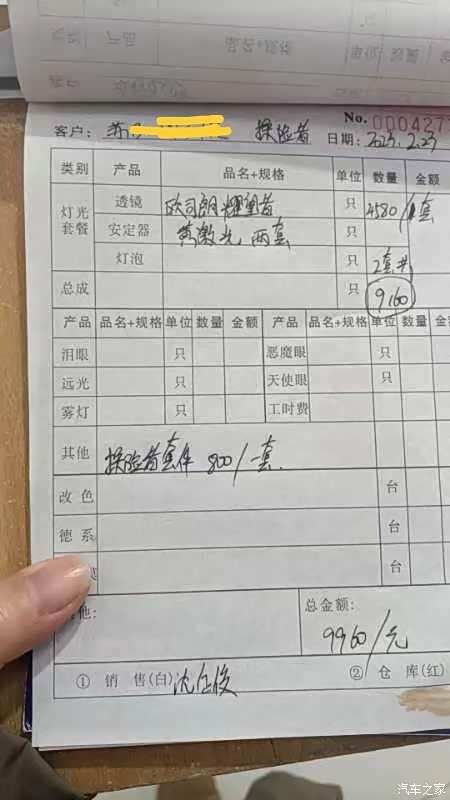 No. 000427
客户: 苏 探险者 日期: 2023.2.23
类别 产品 品名+规格 单位 数量 金额
灯光套餐 透镜 欧司朗耀望者 只 4580/1套
安定器 黄激光 两套 只
灯泡 只 2套共
总成 只 9160
产品 品名+规格 单位 数量 金额 产品 品名+规格 单位 数量 金额
泪眼 只 恶魔眼 只
远光 只 天使眼 只
雾灯 只 工时费
其他 探险者套件 800/一套.
改色 台
德系 台
台
他: 总金额:
9960/元
① 销售(白) 沈 俊 ② 仓库(红)
汽车之家